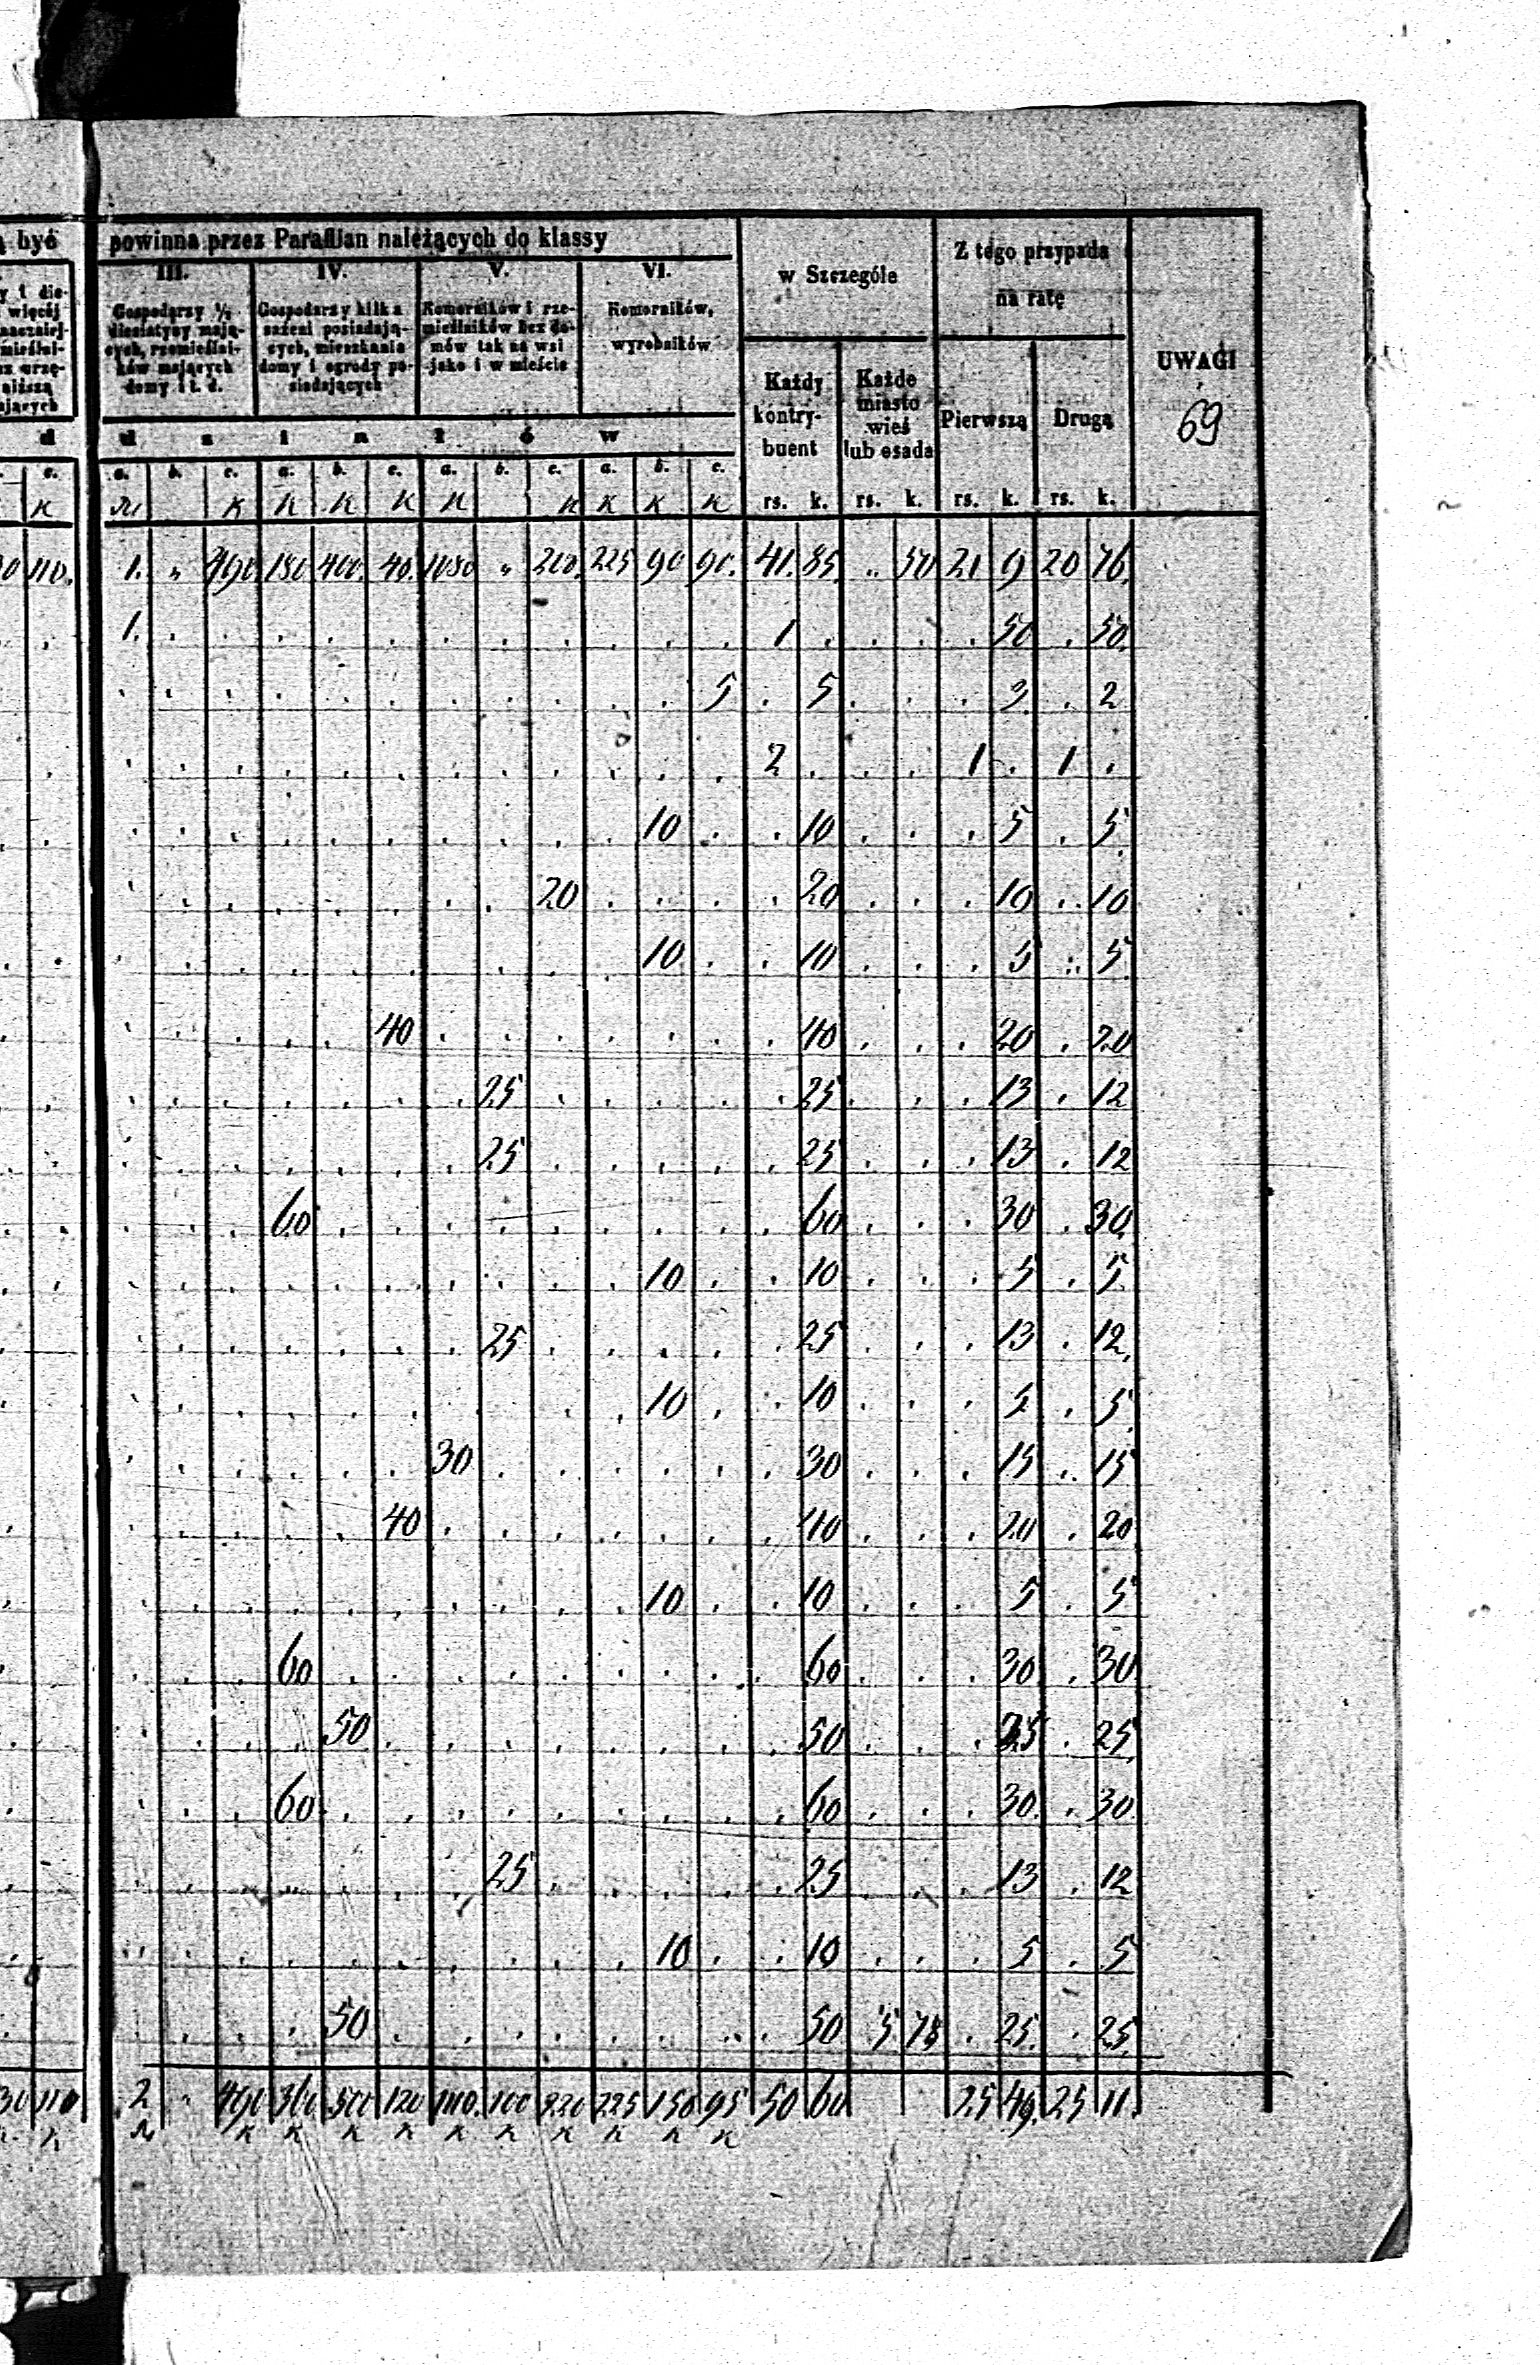 być powinna przez Paraflian należących do klassy
w Szczególe
Z tego przypada na ratę
UWAGI
69
III. IV. V. VI.
Gospodarzy ½ diesiatyny mających, rzemieślników mających domy i t. d.
Gospodarzy kilka sążeni posiadających, mieszkania domy i ogrody posiadających
Komorników i rzemieślników bez domów tak na wsi jako i w mieście
Komorników, wyrobników
Każdy kontrybuent
Każde miasto wieś lub osada
Pierwszą
Drugą
d u s i n t ó w
c. a. b. c. a. b. c. a. b. c. a. b. c.
rs. k. rs. k. rs. k. rs. k.
110. 1. " 490 180 400. 40. 1080 " 200. 225 90 90. 41. 85. " 50 21 9 20 76.
1. 1 50 50.
5 5 3 2
2 1 1
10 10 5 5
20 20 10 10
10 10 5 5
40 40 20 20
25 25 13 12
25 25 13 12
60 60 30 30
10 10 5 5
25 25 13 12
10 10 5 5
30 30 15 15
40 40 20 20
10 10 5 5
60 60 30 30
50 50 25 25
60 60 30 30
25 25 13 12
10 10 5 5
50 50 5 78 25 25
110 2 " 490 360 500 120 1110. 100 220 225 150 95 50 60 25 49. 25 11.